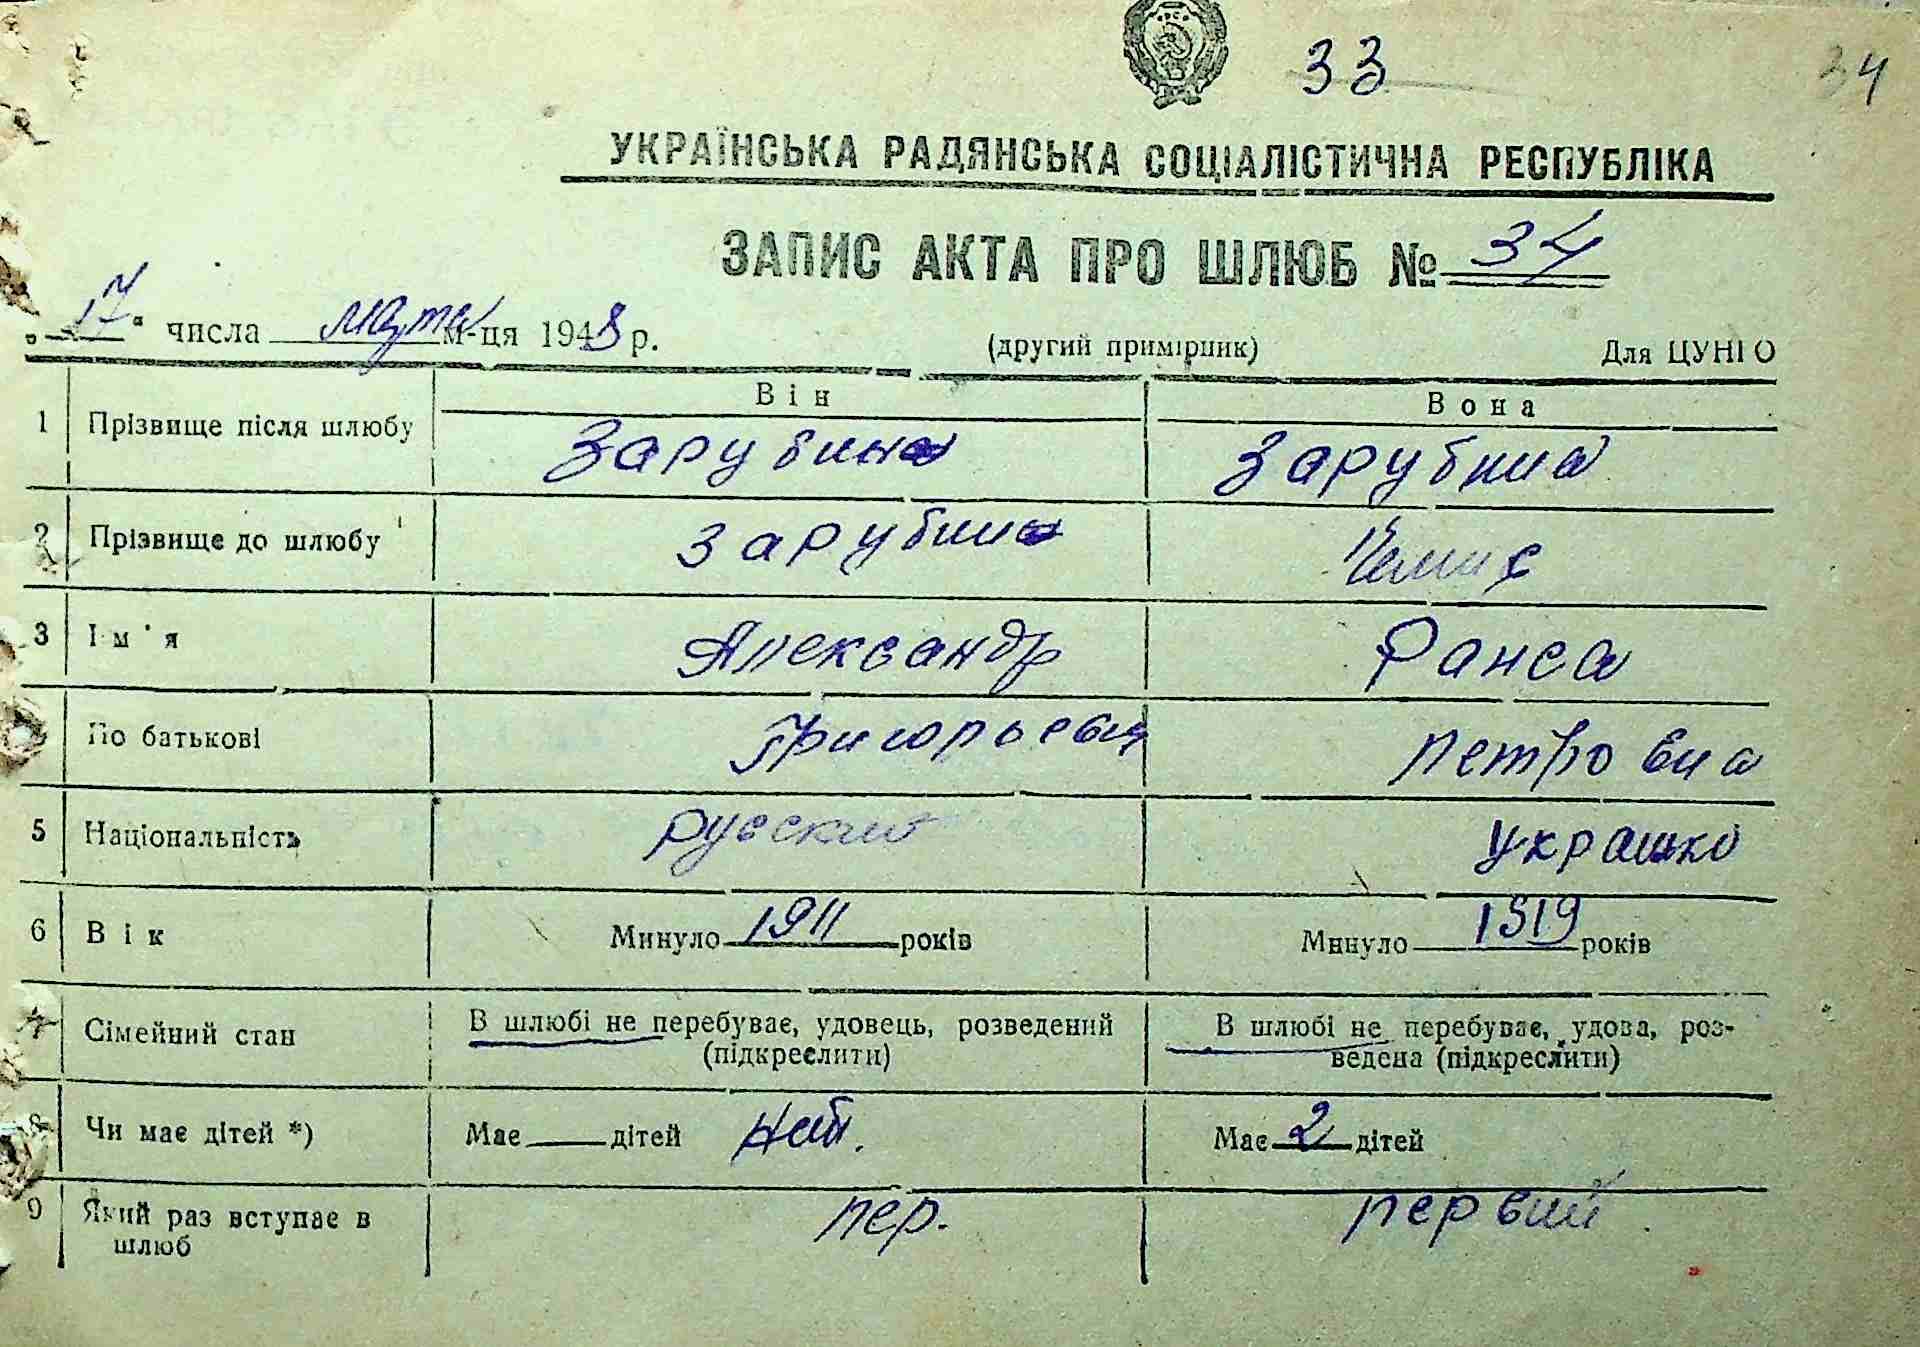 33
34
УКРАЇНСЬКА РАДЯНСЬКА СОЦІАЛІСТИЧНА РЕСПУБЛІКА
ЗАПИС АКТА ПРО ШЛЮБ № 34
„17“ числа марта м-ця 1948 р. (другий примірник) Для ЦУНГО
Він Вона
1 Прізвище після шлюбу Зарубин Зарубина
2 Прізвище до шлюбу Зарубин
3 Ім'я Александр Раиса
По батькові Григорьевич Петровна
5 Національність русский украинка
6 Вік Минуло 1911 років Минуло 1919 років
7 Сімейний стан В шлюбі не перебуває, удовець, розведений В шлюбі не перебуває, удова, роз-
(підкреслити) ведена (підкреслити)
8 Чи має дітей *) Має дітей нет. Має 2 дітей
9 Який раз вступає в пер. первий
шлюб